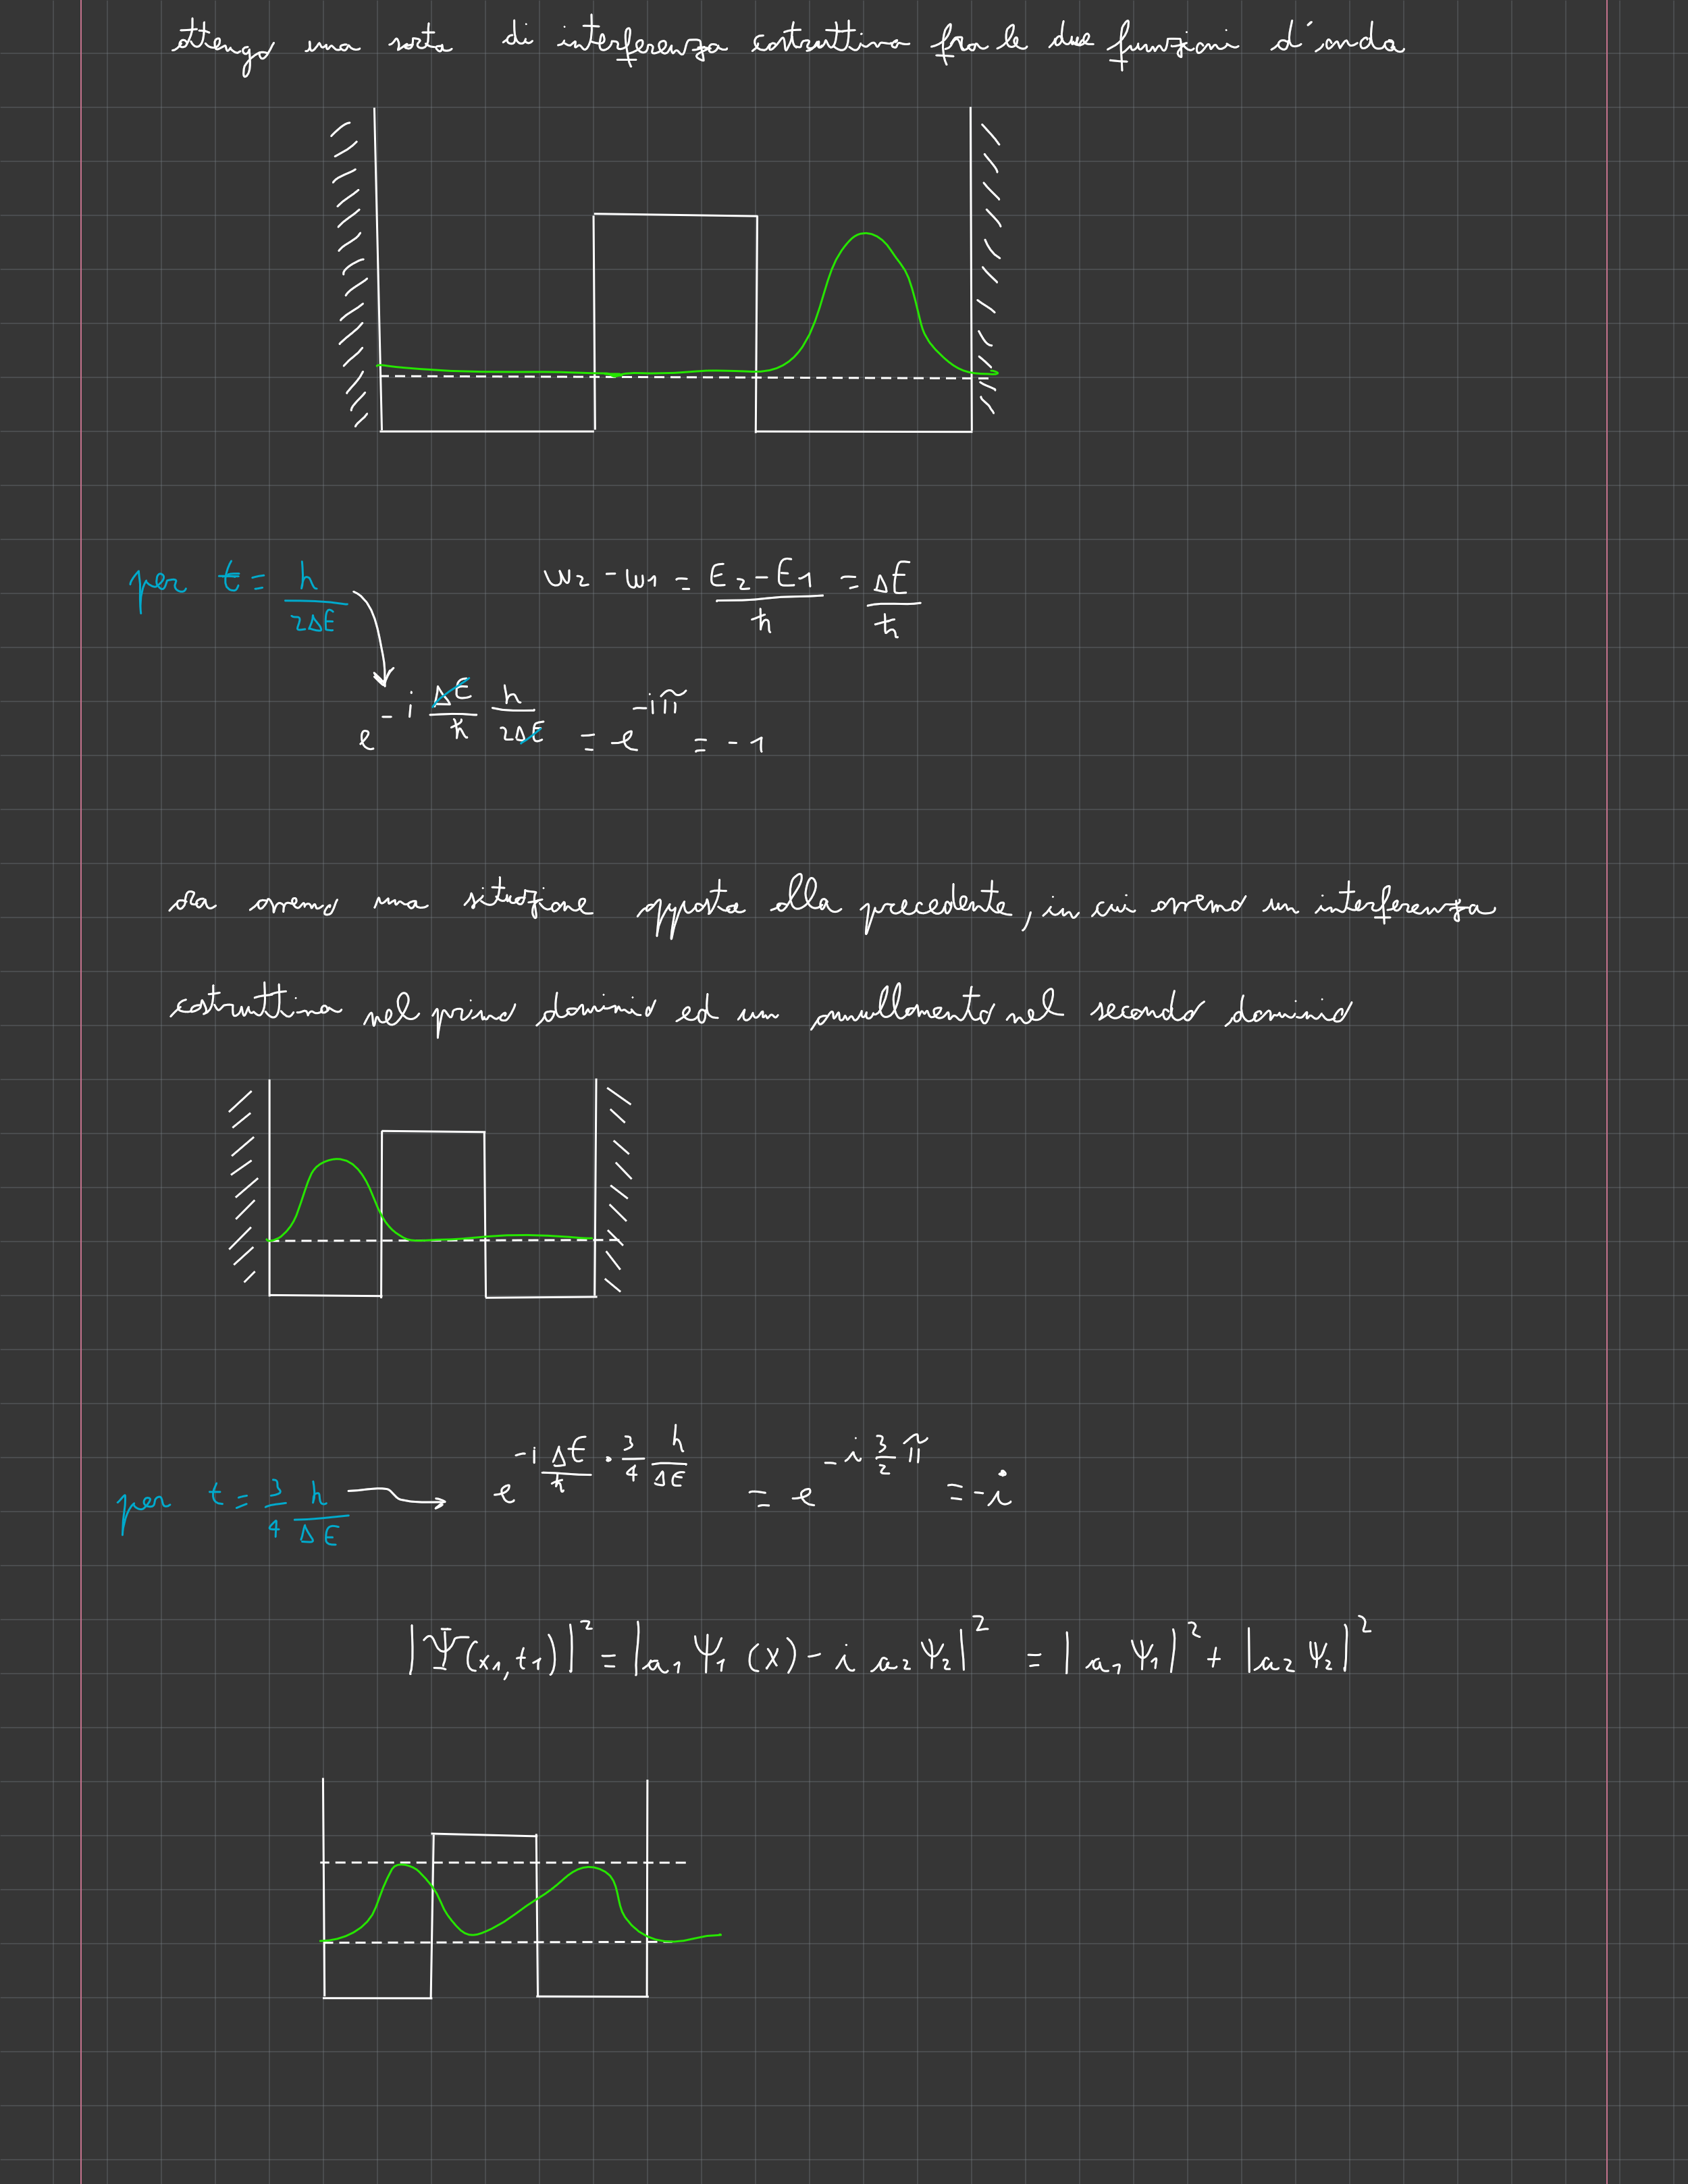 ottengo una sorta di interferenza costruttiva fra le due funzioni d'onda
per t = h / 2ΔE
ω2 - ω1 = (E2 - E1) / ħ = ΔE / ħ
e^(-i (ΔE/ħ) (h/2ΔE)) = e^(-iπ) = -1
ora avremo una situazione opposta alla precedente, in cui avremo un interferenza
costruttiva nel primo dominio ed un annullamento nel secondo dominio
per t = 3/4 h/ΔE → e^(-i (ΔE/ħ) · (3/4) (h/ΔE)) = e^(-i (3/2) π) = -i
|Ψ(x1, t1)|² = |a1 Ψ1 (x) - i a2 Ψ2|² = |a1 Ψ1|² + |a2 Ψ2|²